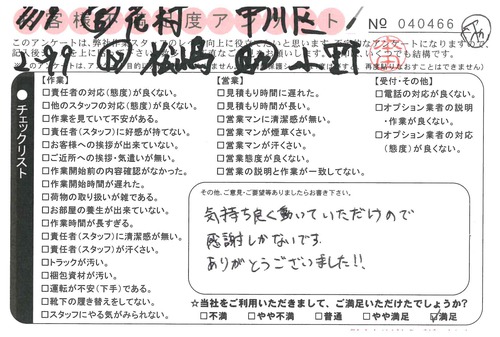 No 040466
チェックリスト
【作業】
□責任者の対応(態度)が良くない。
□他のスタッフの対応(態度)が良くない。
□作業を見ていて不安がある。
□責任者(スタッフ)に好感が持てない。
□お客様への挨拶が出来ていない。
□ご近所への挨拶・気遣いが無い。
□作業開始前の内容確認がなかった。
□作業開始時間が遅れた。
□荷物の取り扱いが雑である。
□お部屋の養生が出来ていない。
□作業時間が長すぎる。
□責任者(スタッフ)に清潔感が無い。
□責任者(スタッフ)が汗くさい。
□トラックが汚い。
□梱包資材が汚い。
□運転が不安(下手)である。
□靴下の履き替えをしてない。
□スタッフにやる気がみられない。
【営業】
□見積もり時間に遅れた。
□見積もり時間が長い。
□営業マンに清潔感が無い。
□営業マンが煙草くさい。
□営業マンが汗くさい。
□営業態度が良くない。
□営業の説明と作業が一致してない。
【受付・その他】
□電話の対応が良くない。
□オプション業者の説明
・作業が良くない。
□オプション業者の対応
(態度)が良くない。
その他、ご意見・ご要望等ありましたらお書き下さい。
気持ち良く働いていただけので
感謝しかないです。
ありがとうございました!!
☆当社をご利用いただきまして、ご満足いただけたでしょうか?
□不満 □やや不満 □普通 □やや満足 ☑満足